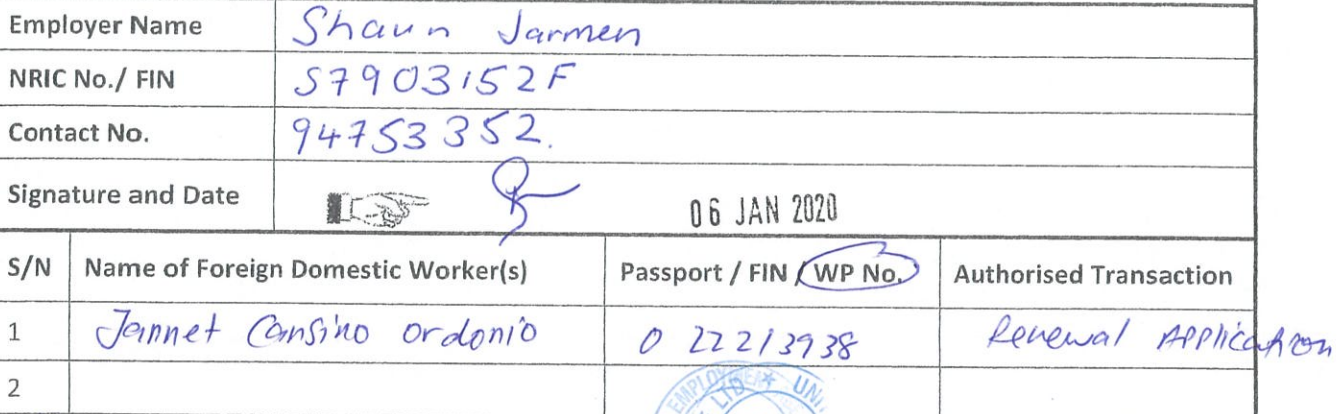 Employer Name Shaun Jarmen
NRIC No./ FIN S7903152F
Contact No. 94753352.
Signature and Date 06 JAN 2020
S/N Name of Foreign Domestic Worker(s) Passport / FIN / WP No. Authorised Transaction
1 Jannet Cansino Ordonio 0 22213938 Renewal Application
2
EMPLOYMENT LTD * UNI